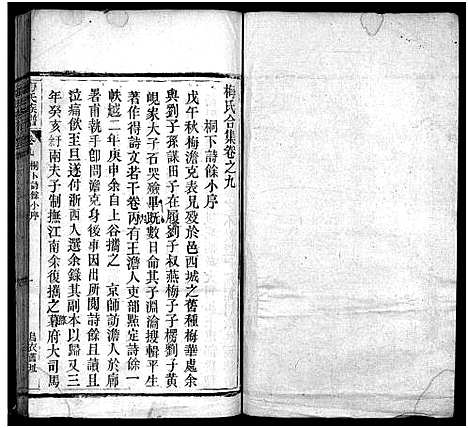 梅氏合集卷之九
桐下詩餘小序
戊午秋梅澹克表兄歿於邑西城之舊種梅華處余
與劉子孫謀田子在履劉子叔燕梅子子楞劉子黃
峴家大子百哭殮畢既數日命其子淵淪搜輯平生
著作得詩文若干卷丙有王澹人吏部點定詩餘一
帙越二年庚申余自上谷攜之 京師訪澹人於廊
署甫執手卽問澹克身後事因出所閱詩餘且讀且
泣痛飲至旦遂付浙西人選余錄其副本以歸又三
年癸亥 兩夫子制撫江南余復攜之幕府大司馬
氏族譜
卷九
桐下詩餘小序
一